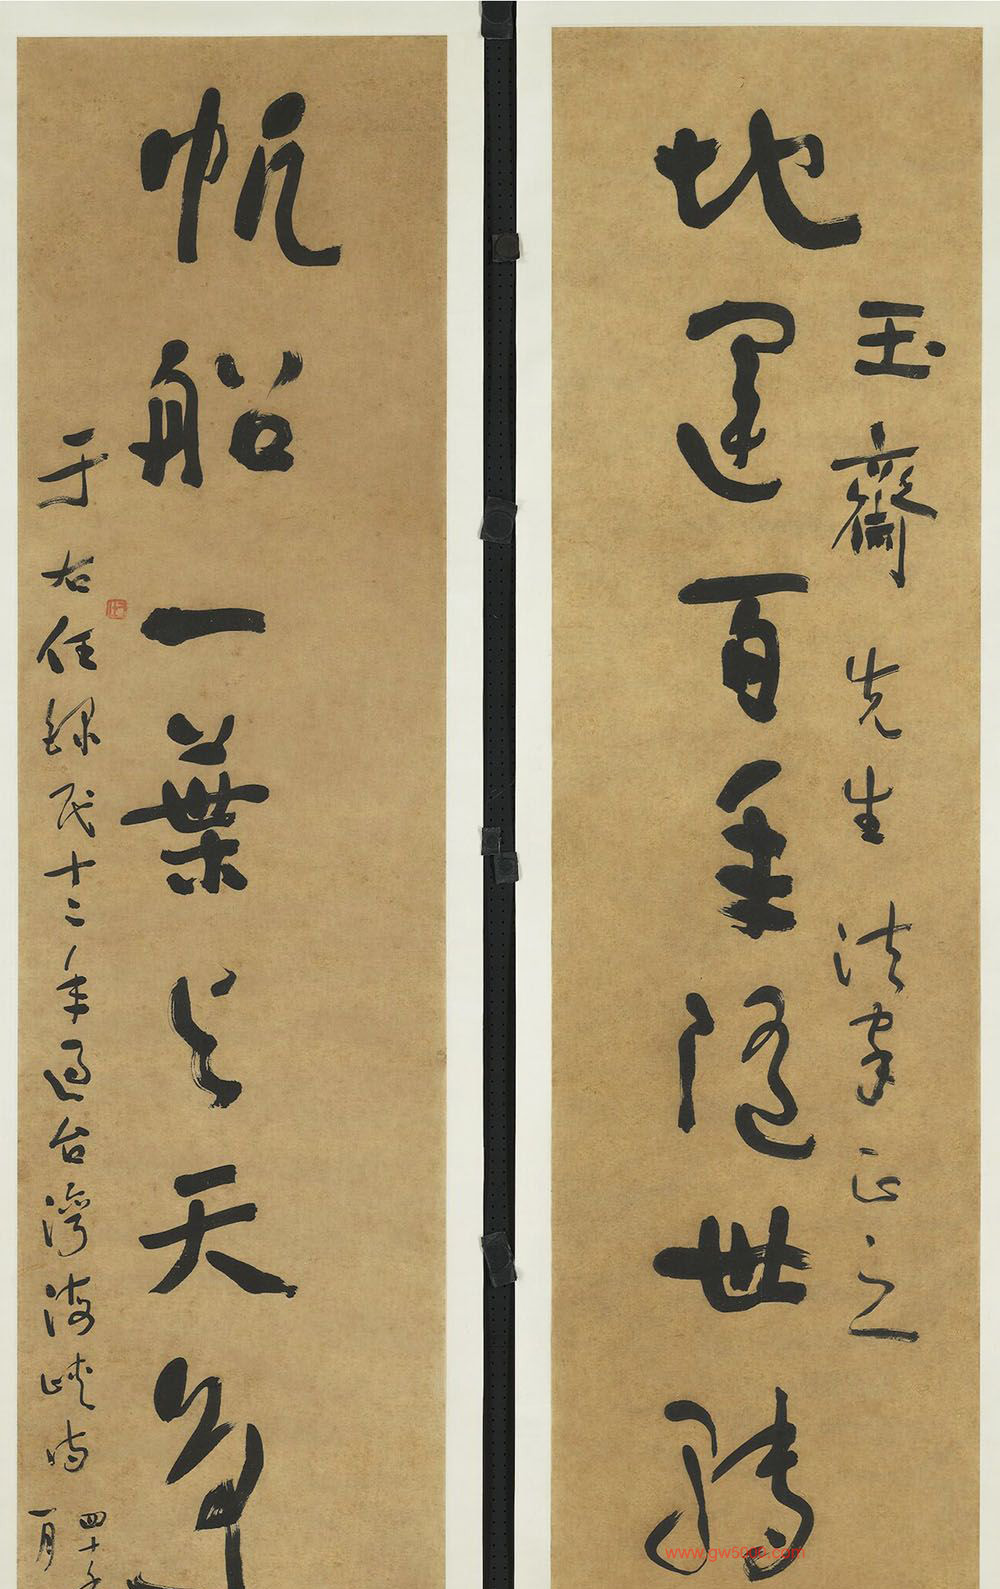 玉齋先生法家正之
地運百年隨世轉
帆船一葉與天爭
于右任錄民十二年過台灣海峽詩
四十年
一月
www.gw5000.com